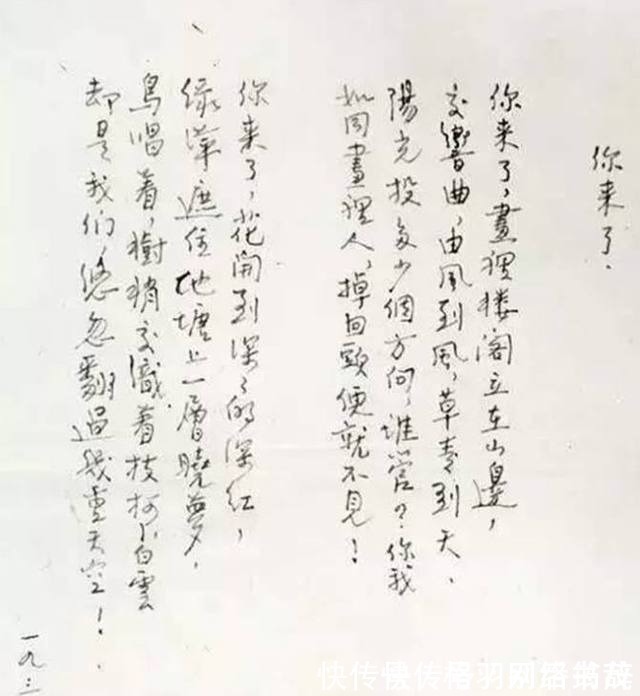 你来了.
你来了,畫裡楼阁立在山邊,
交響曲,由風到風,草青到天、
陽光投多少個方向,誰管?你我
如同畫裡人,掉回頭便就不見!
你来了,花開到深々的深紅,
绿萍遮住池塘上一層曉夢,
鳥唱着,樹梢交織着枝柯,白雲
却是我们,悠忽翻過幾重天空!
一九
快传